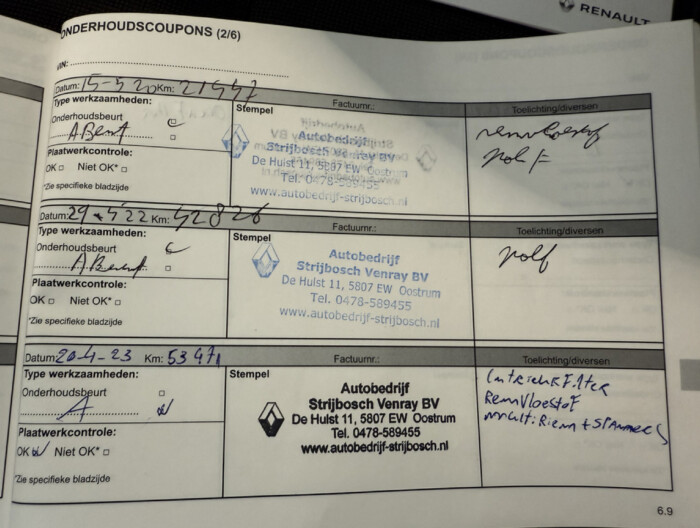 RENAULT
ONDERHOUDSCOUPONS (2/6)
VIN:
Datum: 15-5 20 Km: 21557
Type werkzaamheden:
Stempel
Factuurnr.:
Toelichting/diversen
Onderhoudsbeurt
A Beurt
Plaatwerkcontrole:
OK □ Niet OK* □
*Zie specifieke bladzijde
Autobedrijf
Strijbosch Venray BV
De Hulst 11, 5807 EW Oostrum
Tel. 0478-589455
www.autobedrijf-strijbosch.nl
remvloeistof
pol F
Datum: 29 Km: 42826
Type werkzaamheden:
Stempel
Factuurnr.:
Toelichting/diversen
Onderhoudsbeurt
A Beurt
Plaatwerkcontrole:
OK □ Niet OK* □
*Zie specifieke bladzijde
Autobedrijf
Strijbosch Venray BV
De Hulst 11, 5807 EW Oostrum
Tel. 0478-589455
www.autobedrijf-strijbosch.nl
polf
Datum: 20-4-23 Km: 53471
Type werkzaamheden:
Stempel
Factuurnr.:
Toelichting/diversen
Onderhoudsbeurt □
A
Plaatwerkcontrole:
OK Niet OK* □
*Zie specifieke bladzijde
Autobedrijf
Strijbosch Venray BV
De Hulst 11, 5807 EW Oostrum
Tel. 0478-589455
www.autobedrijf-strijbosch.nl
RemVloestof
multi Riem + Spanners
6.9